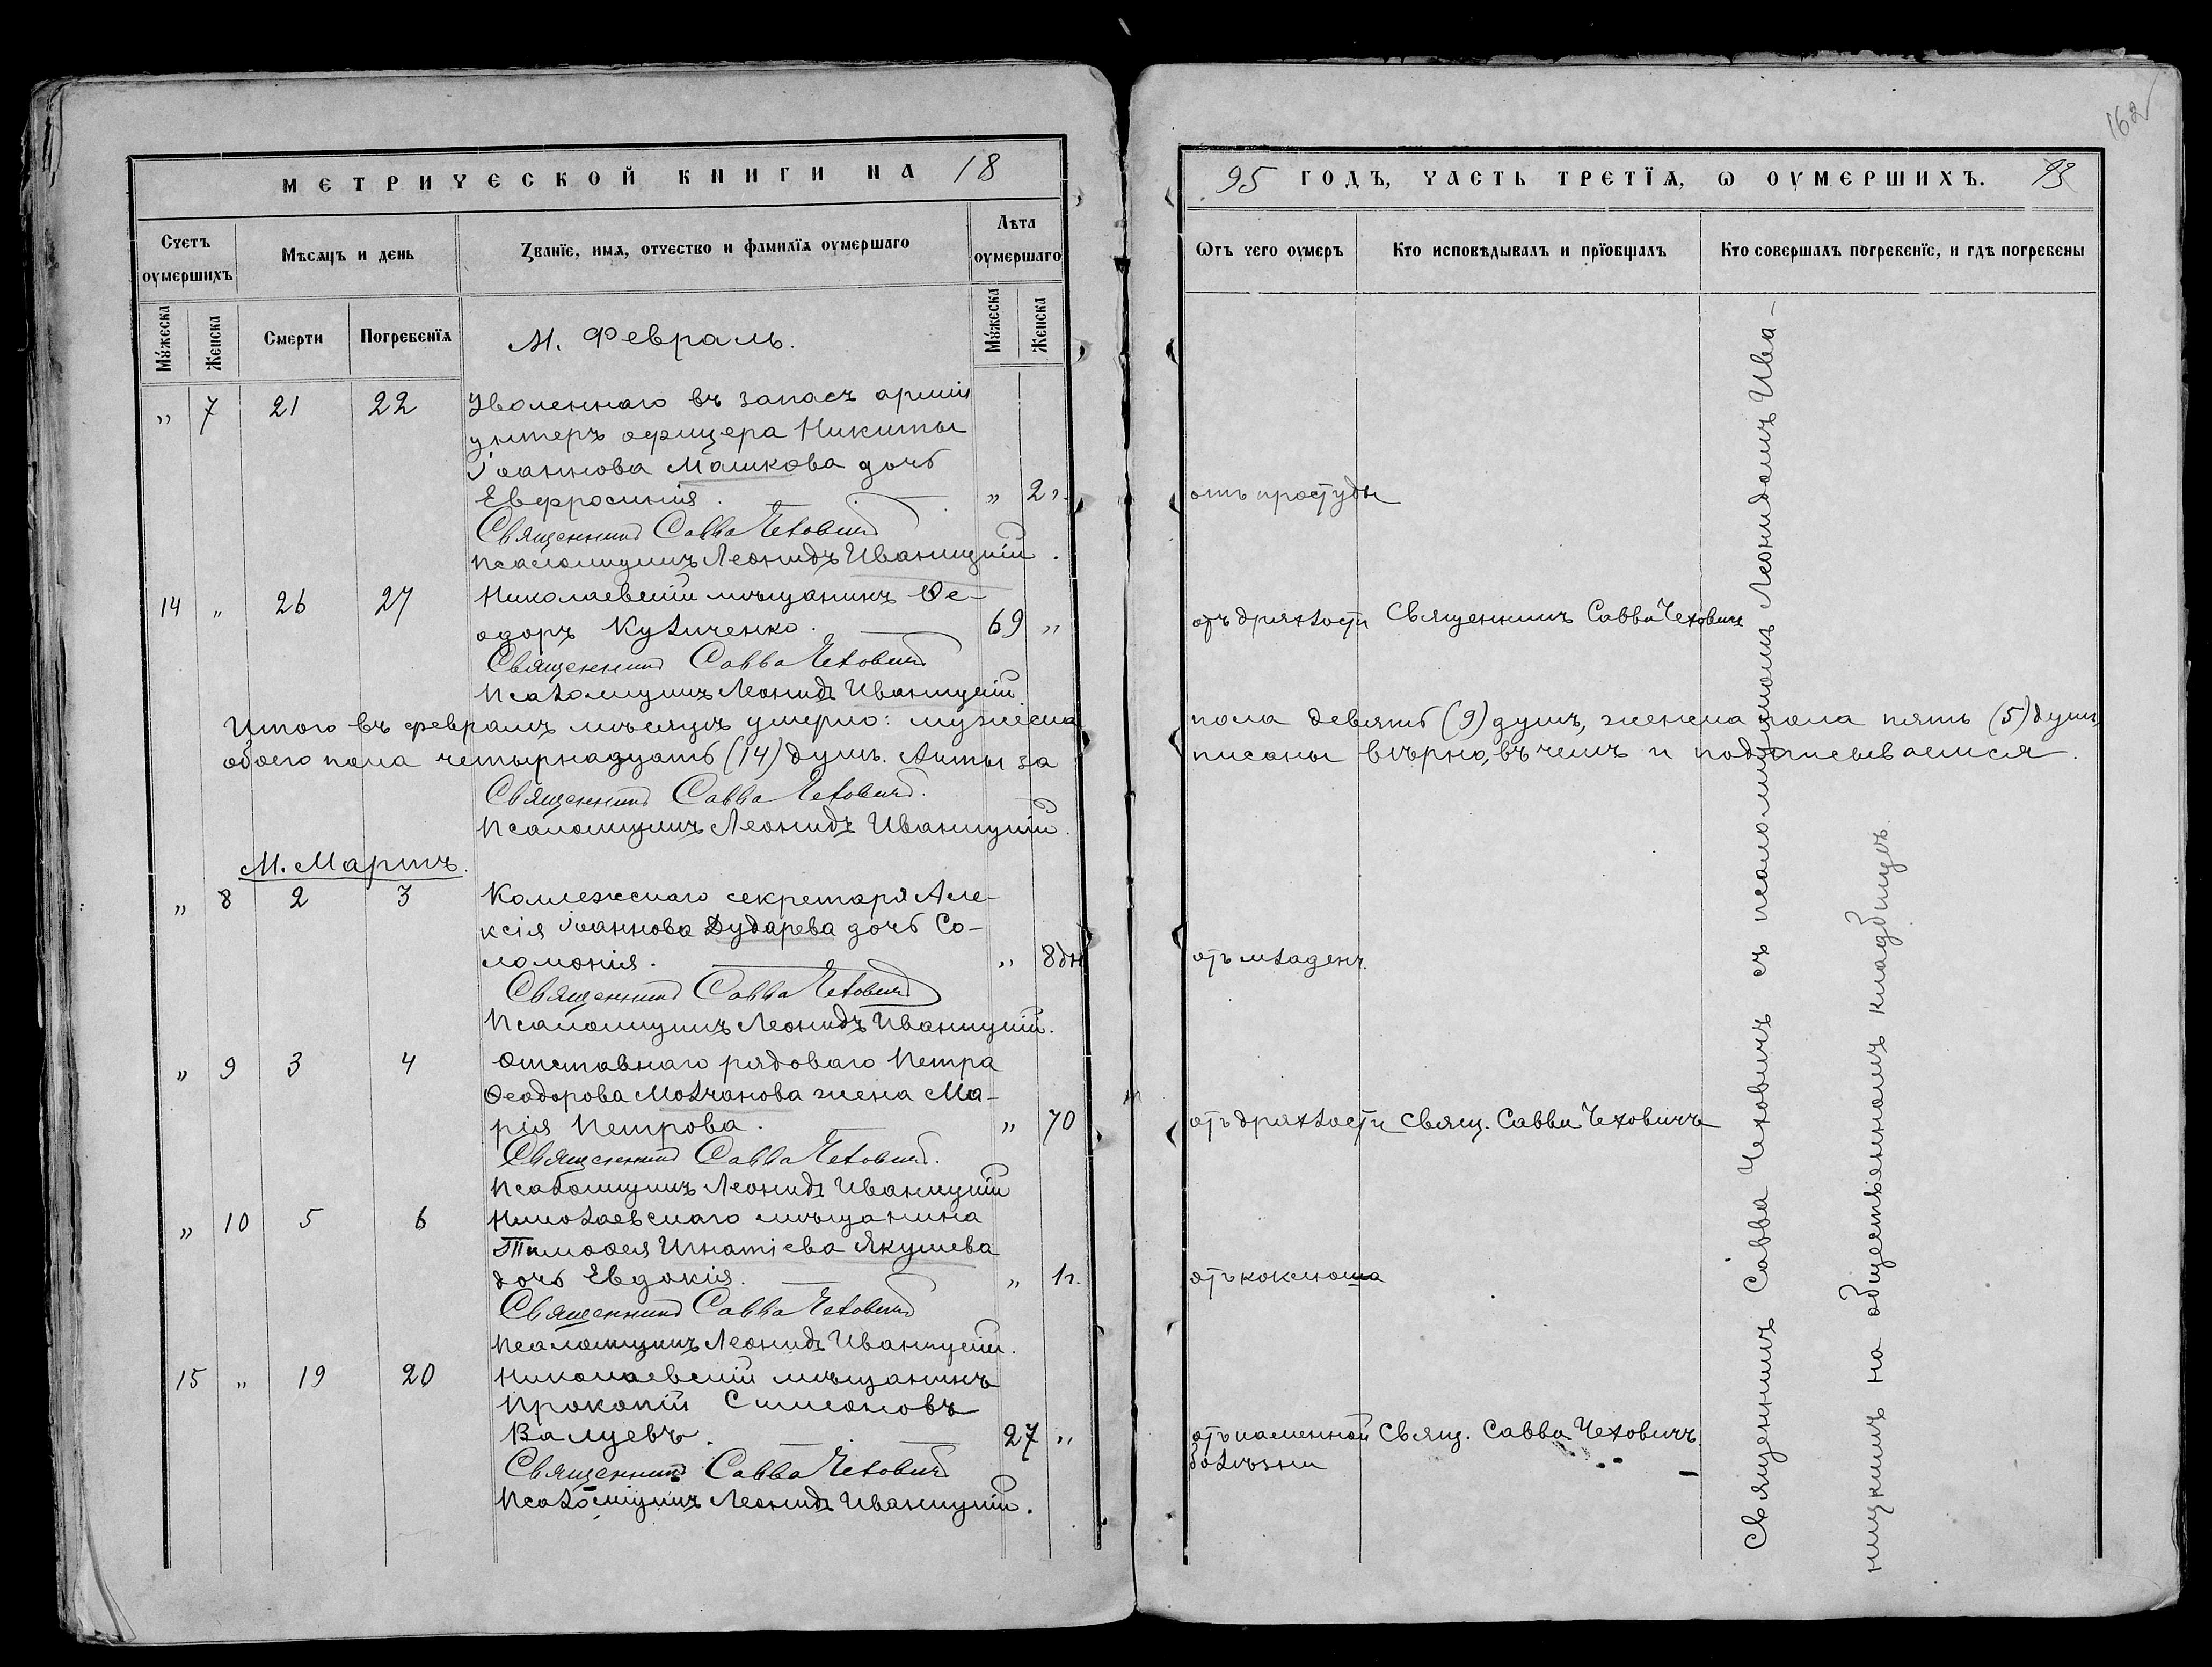 162
МЕТРИЧЕСКОЙ КНИГИ НА 18
95 ГОДЪ, ЧАСТЬ ТРЕТЇѦ, Ѡ ОУМЕРШИХЪ.
Счетъ оумершихъ
Мѣсяцъ и день
Званїе, имѧ, отчество и фамилїѧ оумершаго
Лѣта оумершаго
Ѿтъ чего оумеръ
Кто исповѣдывалъ и прїобщалъ
Кто совершалъ погребенїе, и гдѣ погребены
Мужеска
Женска
Смерти
Погребенїѧ
М. Февраль.
Мужеска
Женска
" 7 21 22 Уволеннаго въ запасъ арміи
унтеръ офицера Никиты
Іоаннова Машкова дочь
Евфросинія. " 2 г. отъ простуды
Священникъ Савва Чеховичъ
Псаломщикъ Леонидъ Иваницкій.
14 " 26 27 Николаевскій мѣщанинъ Ѳе-
одоръ Кузиченко. 69 " отъ дряхлости Священникъ Савва Чеховичъ
Священникъ Савва Чеховичъ
Псаломщикъ Леонидъ Иваницкій
Итого въ февралѣ мѣсяцѣ умерло: мужеска пола девять (9) душъ, женска пола пять (5) душъ,
обоего пола четырнадцать (14) душъ. Акты за писаны вѣрно, въ чемъ и подписываемся.
Священникъ Савва Чеховичъ.
Псаломщикъ Леонидъ Иваницкій.
М. Мартъ.
" 8 2 3 Коллежскаго секретаря Але-
ксія Іоаннова Дударева дочь Со-
ломонія. " 8 дн отъ младенч.
Священникъ Савва Чеховичъ
Псаломщикъ Леонидъ Иваницкій.
" 9 3 4 Отставнаго рядоваго Петра
Ѳеодорова Молчанова жена Ма-
рія Петрова. " 70 отъ дряхлости Свящ. Савва Чеховичъ
Священникъ Савва Чеховичъ.
Псаломщикъ Леонидъ Иваницкій
" 10 5 6 Николаевскаго мѣщанина
Тимоѳея Игнатіева Якушева
дочь Евдокія. " 1 г. отъ коклюша
Священникъ Савва Чеховичъ
Псаломщикъ Леонидъ Иваницкій.
15 " 19 20 Николаевскій мѣщанинъ
Прокопій Симеоновъ
Валуевъ. 27 " отъ каменной Свящ. Савва Чеховичъ.
болѣзни
Священникъ Савва Чеховичъ
Псаломщикъ Леонидъ Иваницкій.
Священникъ Савва Чеховичъ съ псаломщикомъ Леонидомъ Ива-
ницкимъ на общественномъ кладбищѣ.